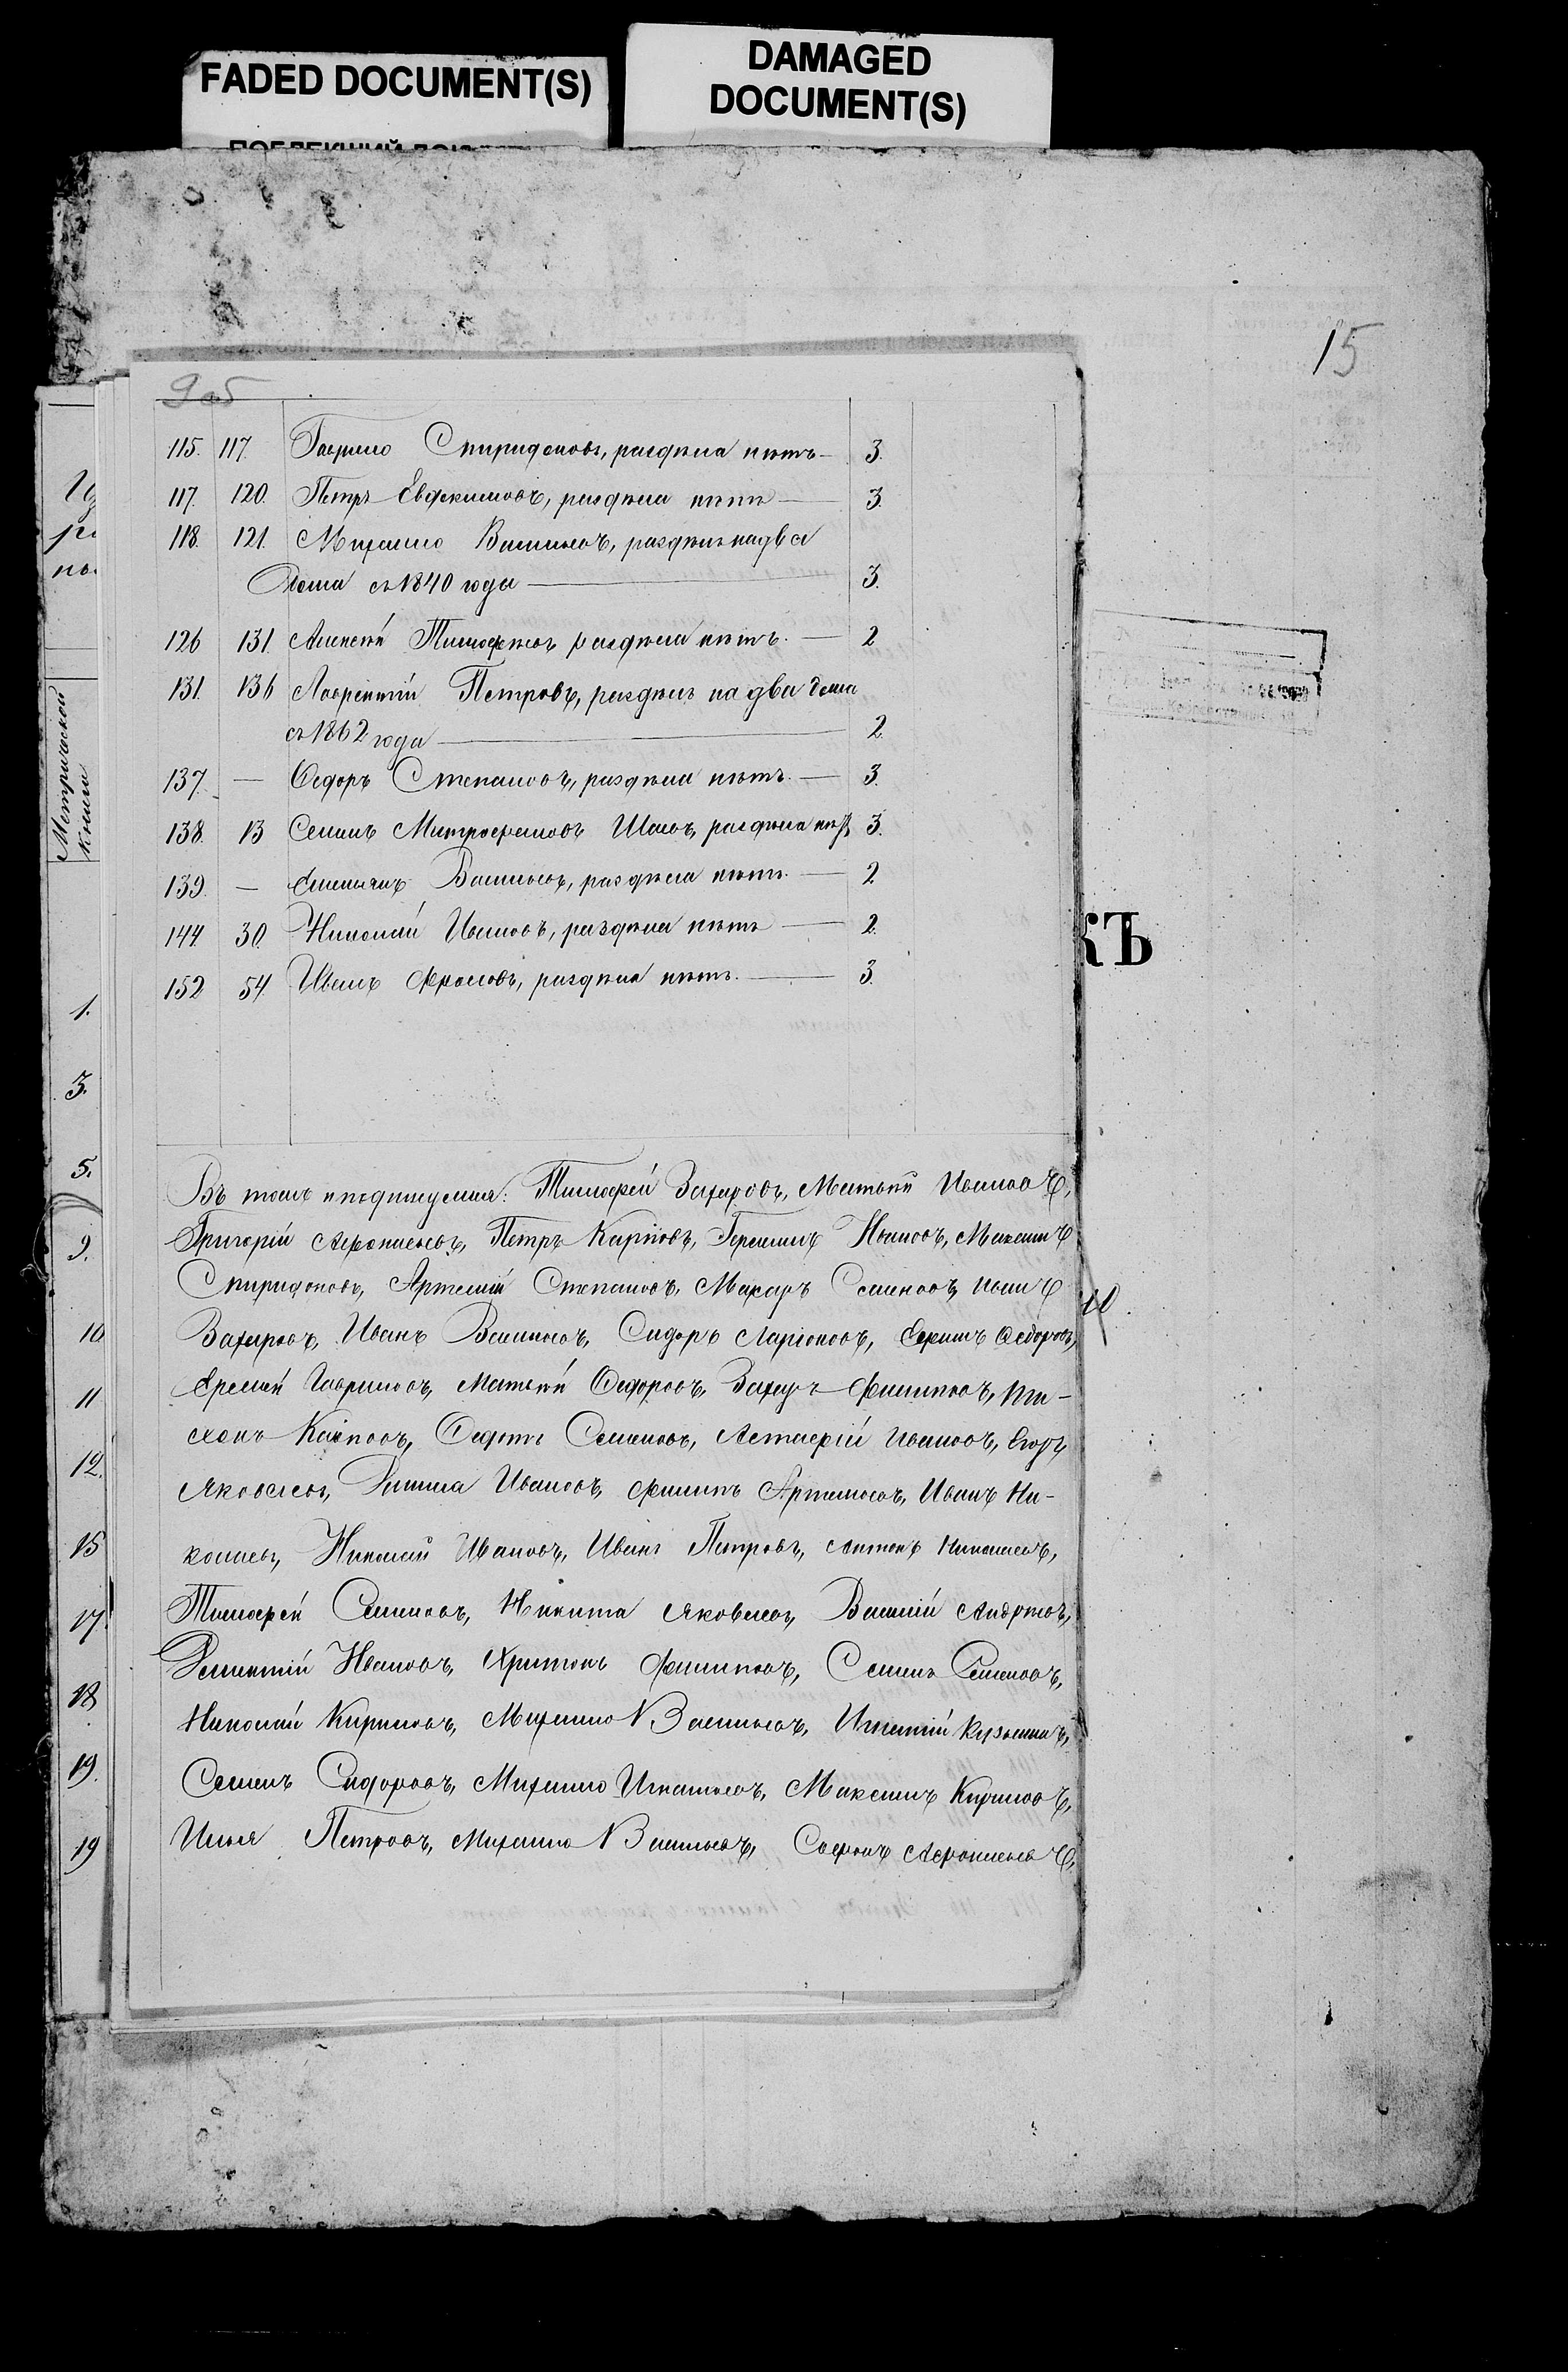 FADED DOCUMENT(S)
DAMAGED
DOCUMENT(S)
15
9об
115. 117. Гаврило Спиридоновъ, раздѣла нѣтъ — 3.
117. 120. Петръ Евдокимовъ, раздѣла нѣтъ — 3.
118. 121. Михайло Васильевъ, раздѣлъ на два
дома съ 1840 года — 3.
126 131. Алексѣй Тимофѣевъ раздѣла нѣтъ. — 2
131. 136 Лаврентій Петровъ, раздѣлъ на два дома
съ 1862 года — 2.
137. — Ѳедоръ Степановъ, раздѣла нѣтъ. — 3.
138. 13 Семенъ Митрофановъ Шаховъ, раздѣла нѣтъ 3.
139. — Емельянъ Васильевъ, раздѣла нѣтъ. — 2
144 30. Николай Ивановъ, раздѣла нѣтъ — 2.
152 54. Иванъ Фроловъ, раздѣла нѣтъ. — 3.
Метрической
книги
1.
3.
5.
9.
10
11
12.
15
17.
18
19.
19
КЪ
Въ томъ и подпишемся: Тимофей Захаровъ, Матвѣй Ивановъ,
Григорій Афонасьевъ, Петръ Карповъ, Герасимъ Ивановъ, Максимъ
Спиридоновъ, Артемій Степановъ, Макаръ Семеновъ, Иванъ
Захаровъ, Иванъ Васильевъ, Сидоръ Ларіоновъ, Ефимъ Ѳедоровъ,
Еремей Гавриловъ, Матвѣй Ѳедоровъ, Захаръ Филиповъ, Ти-
хонъ Карповъ, Ѳедотъ Семеновъ, Астафій Ивановъ, Егоръ
Яковлевъ, Данила Ивановъ, Филипъ Артемьевъ, Иванъ Ни-
колаевъ, Николай Ивановъ, Иванъ Петровъ, Антонъ Николаевъ,
Тимофей Семеновъ, Никита Яковлевъ, Василій Андреевъ,
Дементій Ивановъ, Харитонъ Филиповъ, Семенъ Семеновъ,
Николай Кириловъ, Михайло Васильевъ, Игнатій Кузьминъ,
Семенъ Сидоровъ, Михайло Игнатьевъ, Максимъ Кириловъ,
Илья Петровъ, Михайло Васильевъ, Сафонъ Афонасьевъ,